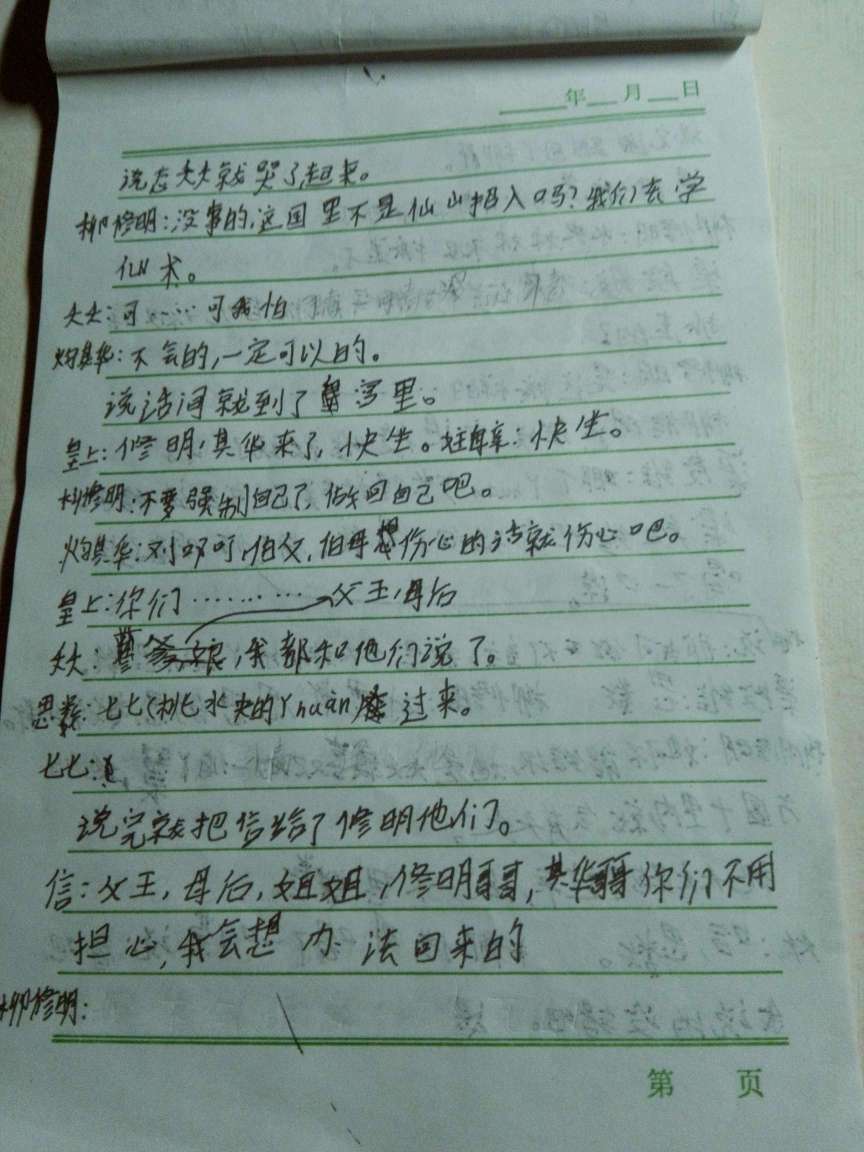 ____年__月__日
说态夭夭就哭了起来。
柳修明：没事的，这国里不是仙山招入吗？我们去学
仙术。
夭夭：可……可我怕
灼其华：不会的，一定可以的。
说话间就到了宫里。
皇上：修明，其华来了，快坐。 快坐。
柳修明：不要强制自己了，做回自己吧。
灼其华：对叹叮，伯父，伯母想伤心的话就伤心吧。
皇上：你们………… 父王，母后
夭夭： 爹娘，我都和他们说了。
思 ：七七(桃水夹的Yhuan 过来。
七七：
说完就把信给了修明他们。
信：父王，母后，姐姐，修明哥哥，其华哥哥你们不用
担心，我会想办法回来的
柳修明：
第 页